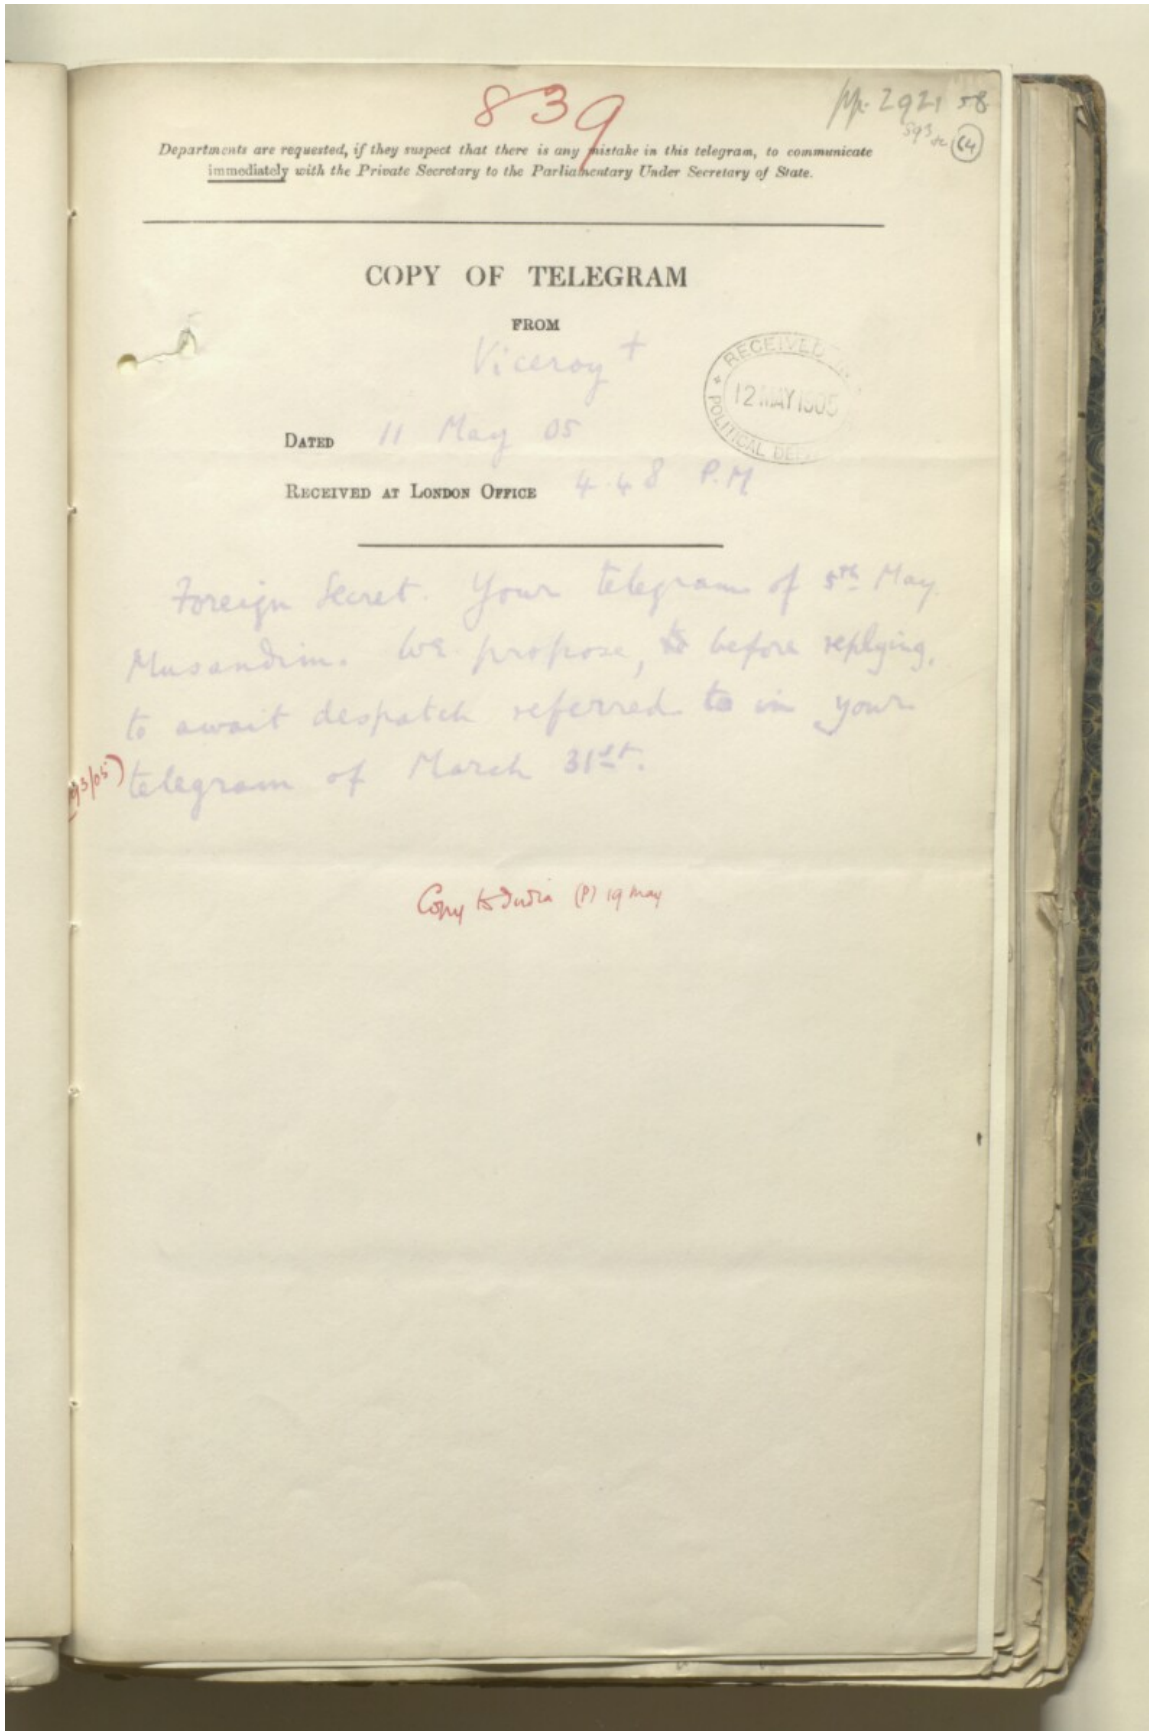 839
58
64
Departments are requested, if they suspect that there is any mistake in this telegram, to communicate
immediately with the Private Secretary to the Parliamentary Under Secretary of State.
COPY OF TELEGRAM
FROM
Viceroy +
RECEIVED
12 MAY 1905
POLITICAL
DATED 11 May 05
RECEIVED AT LONDON OFFICE 4.48 P.M
Foreign Secret. Your telegram of 5th May.
Musandim. We propose, before replying,
to await despatch referred to in your
telegram of March 31st.
Copy to India (P) 19 May